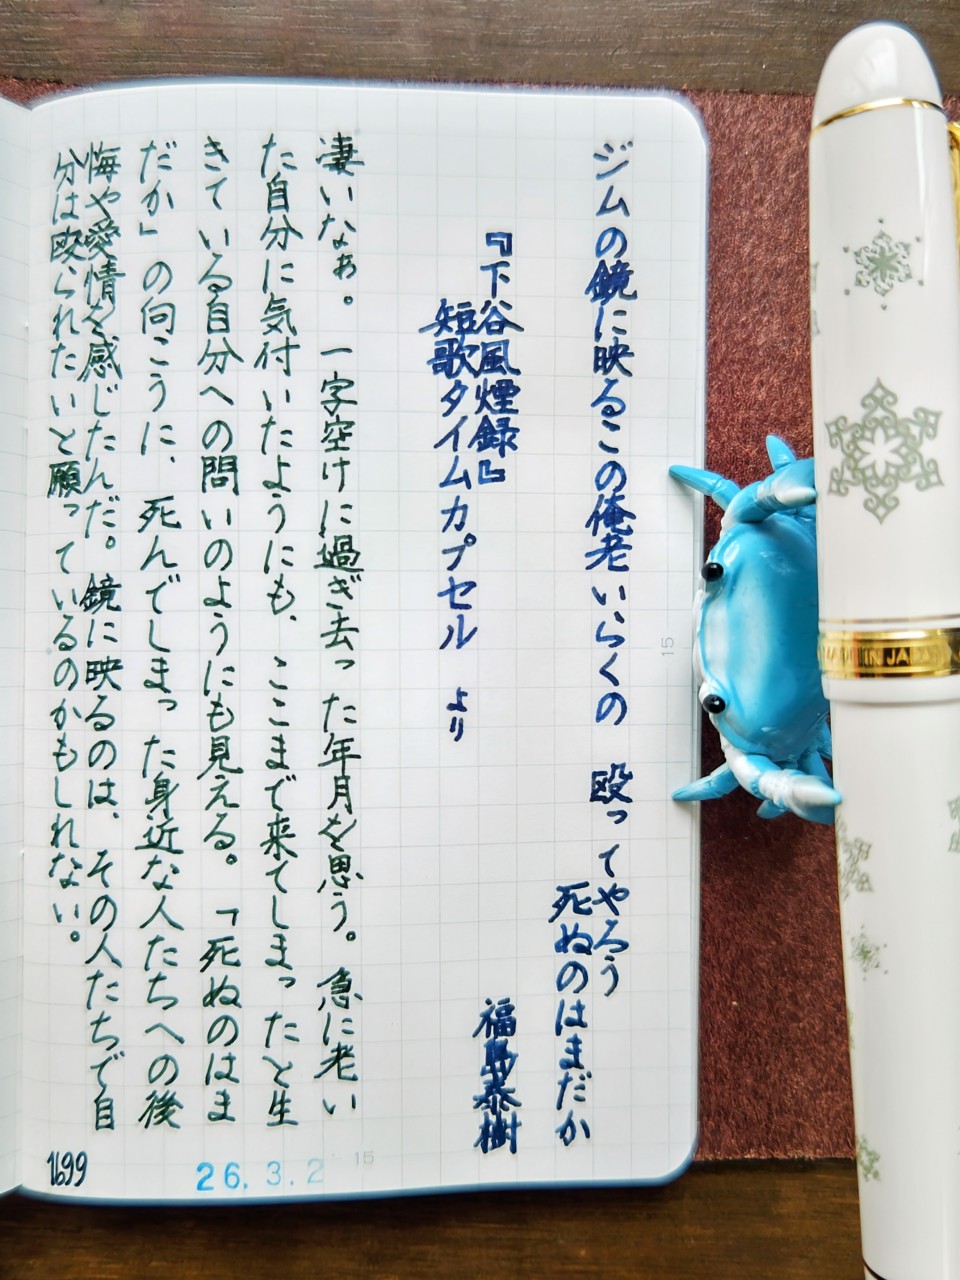 ジムの鏡に映るこの俺老いらくの　殴ってやろう
死ぬのはまだか
福島泰樹
『下谷風煙録』
短歌タイムカプセル　より
凄いなぁ。一字空けに過ぎ去った年月を思う。急に老い
た自分に気付いたようにも、ここまで来てしまったと生
きている自分への問いのようにも見える。「死ぬのはま
だか」の向こうに、死んでしまった身近な人たちへの後
悔や愛情を感じたんだ。鏡に映るのは、その人たちで自
分は殴られたいと願っているのかもしれない。
1699
26.3.2
15
15
MADE IN JAPAN